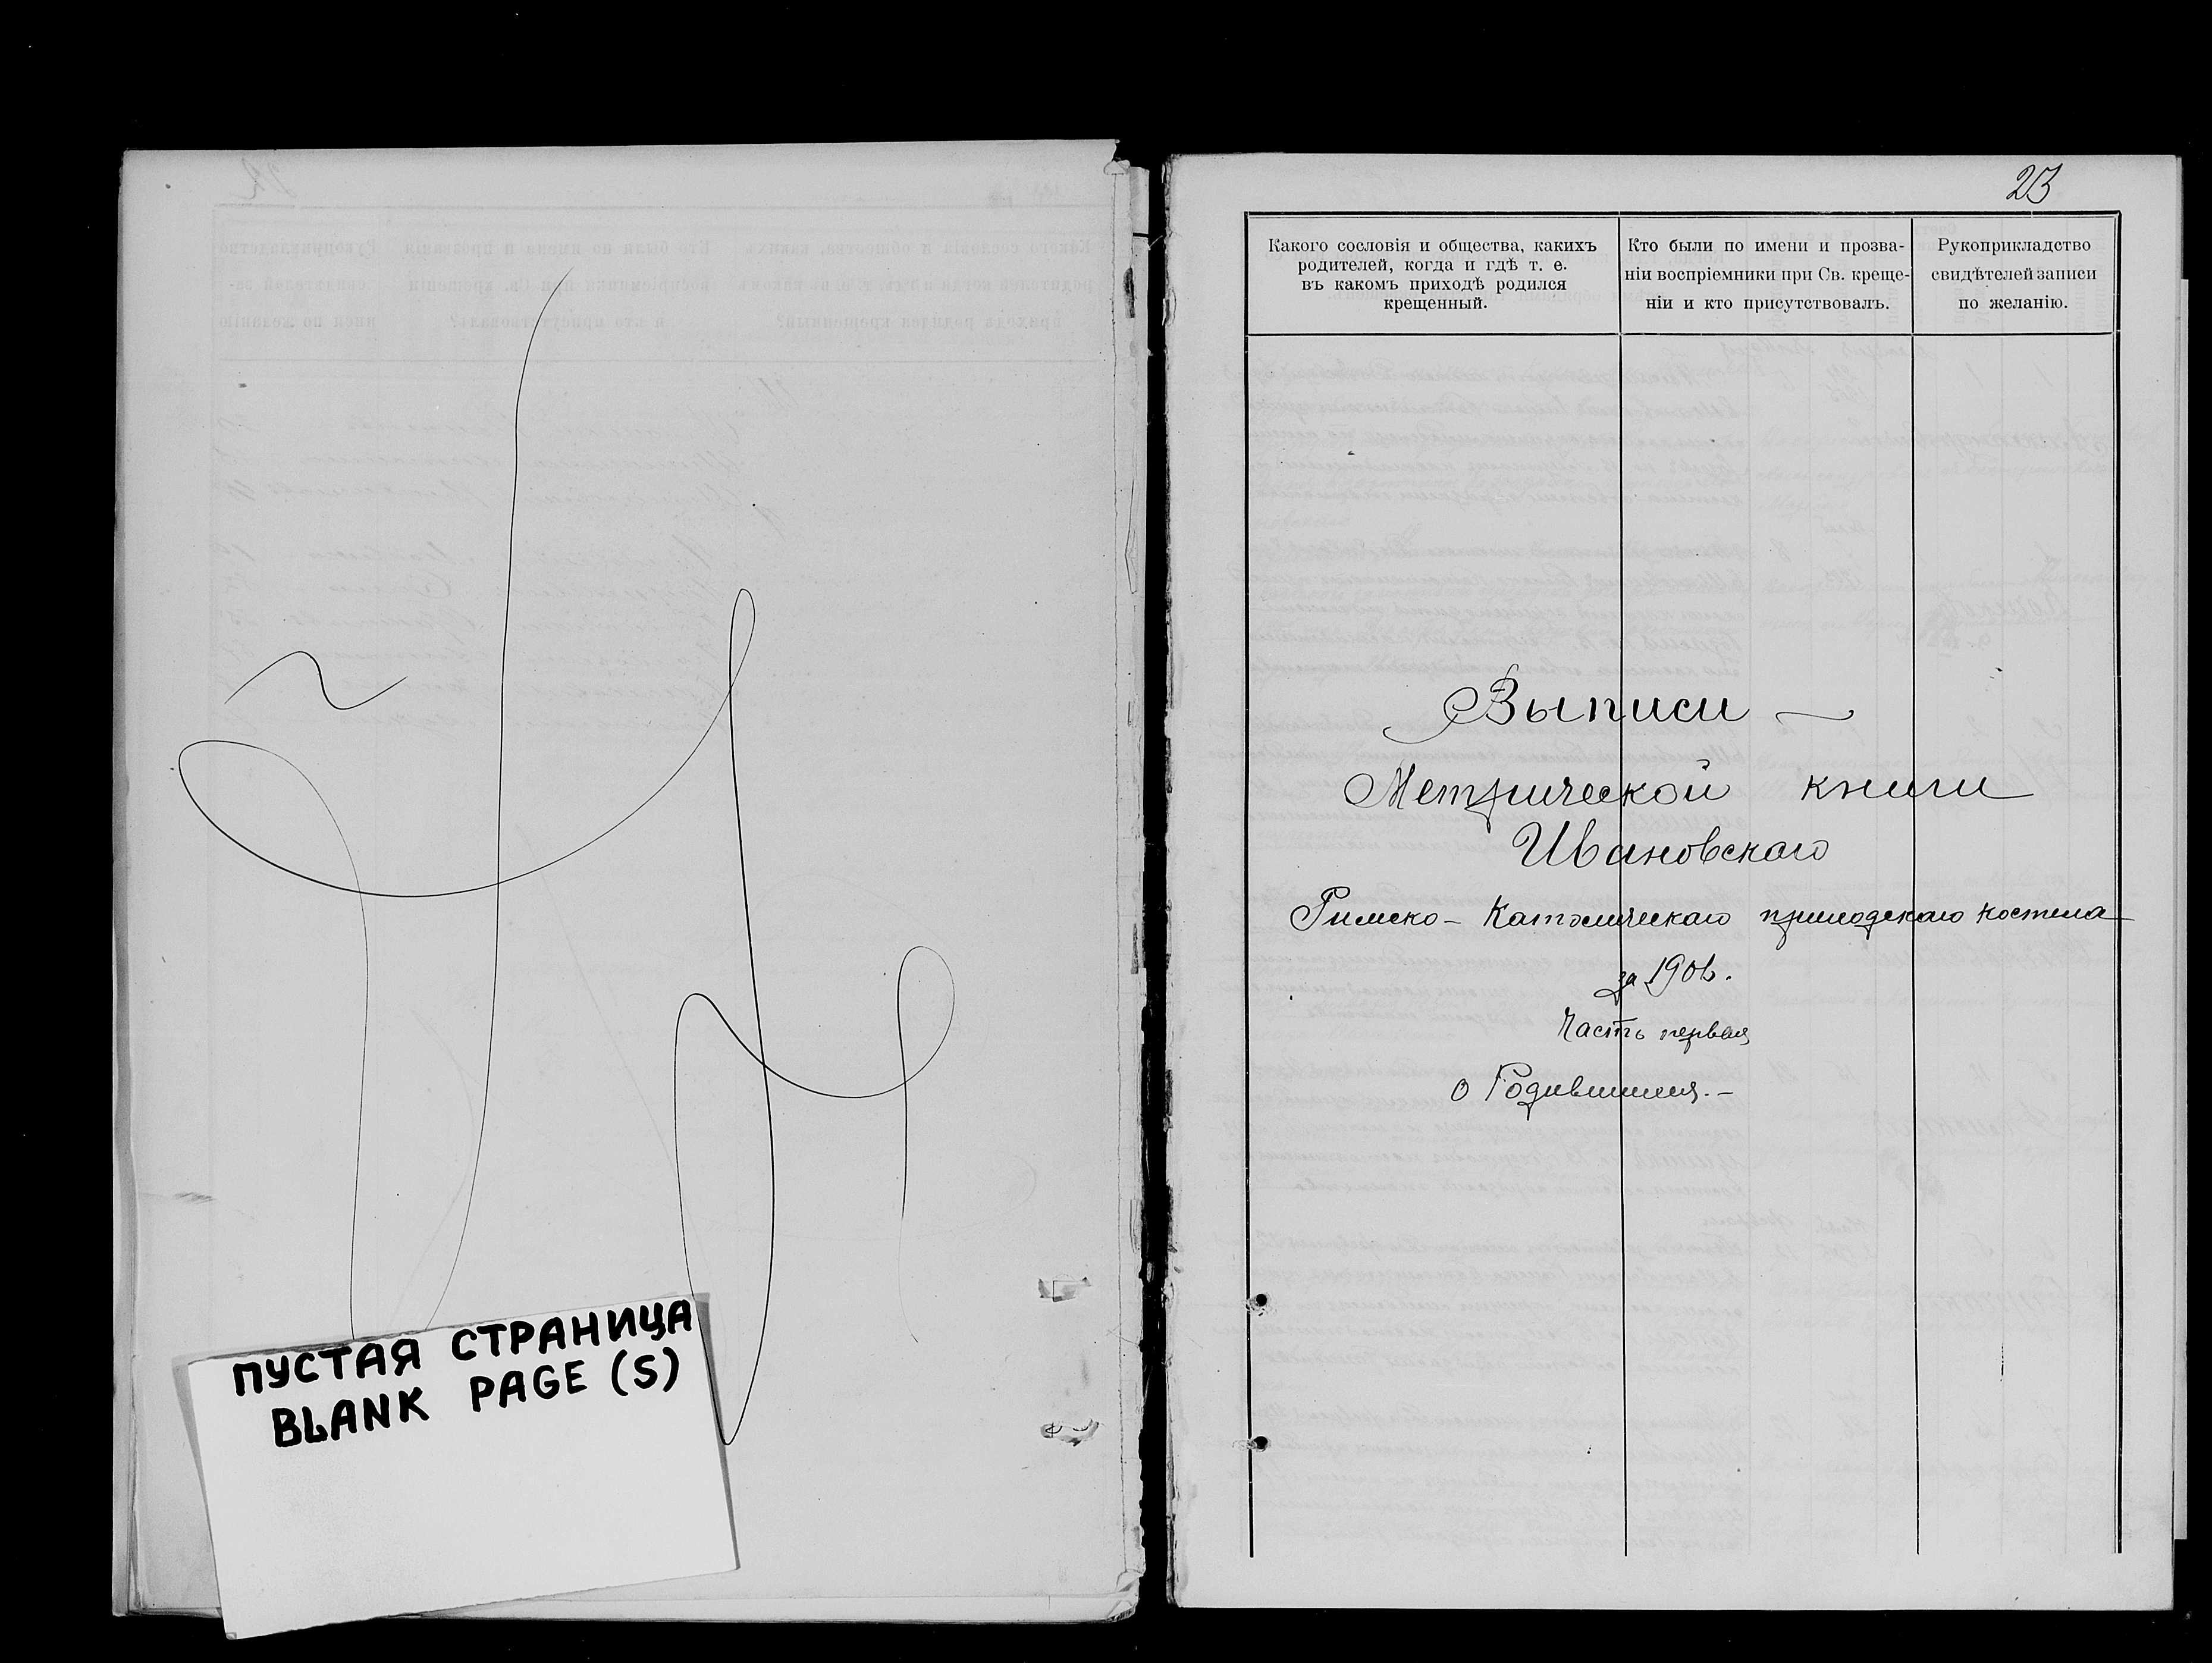 ПУСТАЯ СТРАНИЦА
BLANK PAGE (S)
23
Какого сословія и общества, какихъ
родителей, когда и гдѣ т. е.
въ какомъ приходѣ родился
крещенный.
Кто были по имени и прозва-
ніи воспріемники при Св. креще-
ніи и кто присутствовалъ.
Рукоприкладство
свидѣтелей записи
по желанію.
Выписи —
Метрической книги
Ивановскаго
Римско - Католическаго приходскаго костела
за
Часть первая
о Родившихся. -